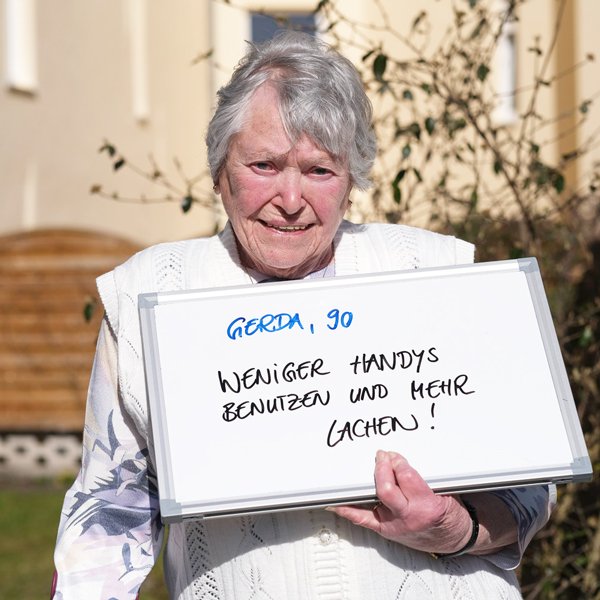 GERDA, 90
WENIGER HANDYS
BENUTZEN UND MEHR
LACHEN!